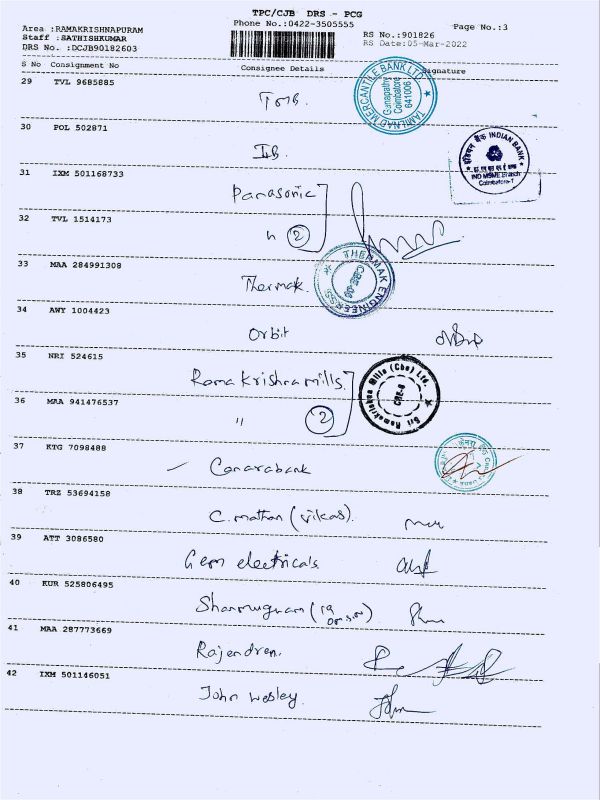 TPC/CJB DRS - PCG
Phone No.:0422-3505555
Page No.:3
Area :RAMAKRISHNAPURAM
Staff :SATHISHKUMAR
DRS No. :DCJB90182603
RS No.:901826
RS Date:05-Mar-2022
S No Consignment No Consignee Details Signature
29 TVL 9685885
TMB.
TAMILNAD MERCANTILE BANK LTD
Ganapathy
Coimbatore
641006
30 POL 502871
IB.
इंडियन बैंक INDIAN BANK
IND MSME Branch
Coimbatore-1
31 IXM 501168733
Panasonic
32 TVL 1514173
" 2
33 MAA 284991308
Thermak.
THERMAK ENGINEERSS
CBE-06
34 AWY 1004423
Orbit
35 NRI 524615
Rama Krishna mills.
Sri Ramakrishna Mills (Cbe) Ltd.
CBE-6
36 MAA 941476537
" 2
37 KTG 7098488
Canarabank
38 TRZ 53694158
C. mathan (vikas).
39 ATT 3086580
Gem electricals
40 KUR 525806495
Shanmugnam
41 MAA 287773669
Rajendren.
42 IXM 501146051
John wesley